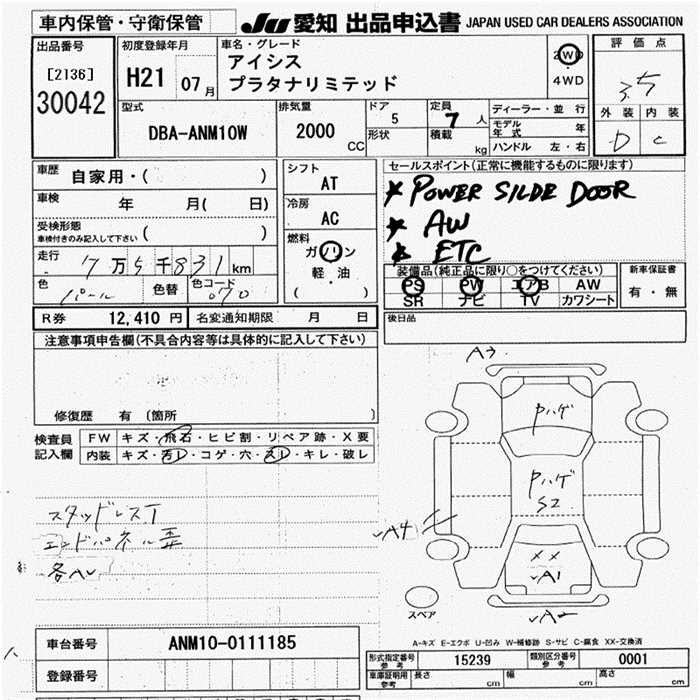 車内保管・守衛保管
JU 愛知 出品申込書 JAPAN USED CAR DEALERS ASSOCIATION
出品番号
[2136]
30042
初度登録年月
H21 07月
車名・グレード
アイシス
プラタナリミテッド
2WD
4WD
評価点
3.5
外装 内装
D C
型式
DBA-ANM10W
排気量
2000 CC
ドア
5
形状
定員
7 人
積載 kg
ディーラー・並行
モデル年式 年
ハンドル 左・右
車歴
自家用・( )
車検 年 月( 日)
受検形態
車検付きのみ記入して下さい ( )
走行 7万5千831km
色 パール 色替 色コード 070
シフト
AT
冷房
AC
燃料
ガソリン
軽・油
( )
セールスポイント(正常に機能するものに限ります)
★ POWER SILDE DOOR
★ AW
★ ETC
装備品(純正品に限り○をつけてください)
PS PW エアB AW
SR ナビ TV カワシート
新車保証書
有・無
R券 12,410 円 名変通知期限 月 日
後日品
注意事項申告欄(不具合内容等は具体的に記入して下さい)
修復歴 有 (箇所 )
検査員記入欄
FW キズ・飛石・ヒビ割・リペア跡・X要
内装 キズ・汚レ・コゲ・穴・スレ・キレ・破レ
スタッドレスT
エンドパネル歪
各AU
A3
Pハゲ
Pハゲ
S2
A4
XX
A1
A2
スペア
A-キズ E-エクボ U-凹み W-補修跡 S-サビ C-腐食 XX-交換済
車台番号 ANM10-0111185
登録番号
形式指定番号 参考 15239 類別区分番号 参考 0001
車庫証明用 参考 長さ cm 幅 cm 高さ cm